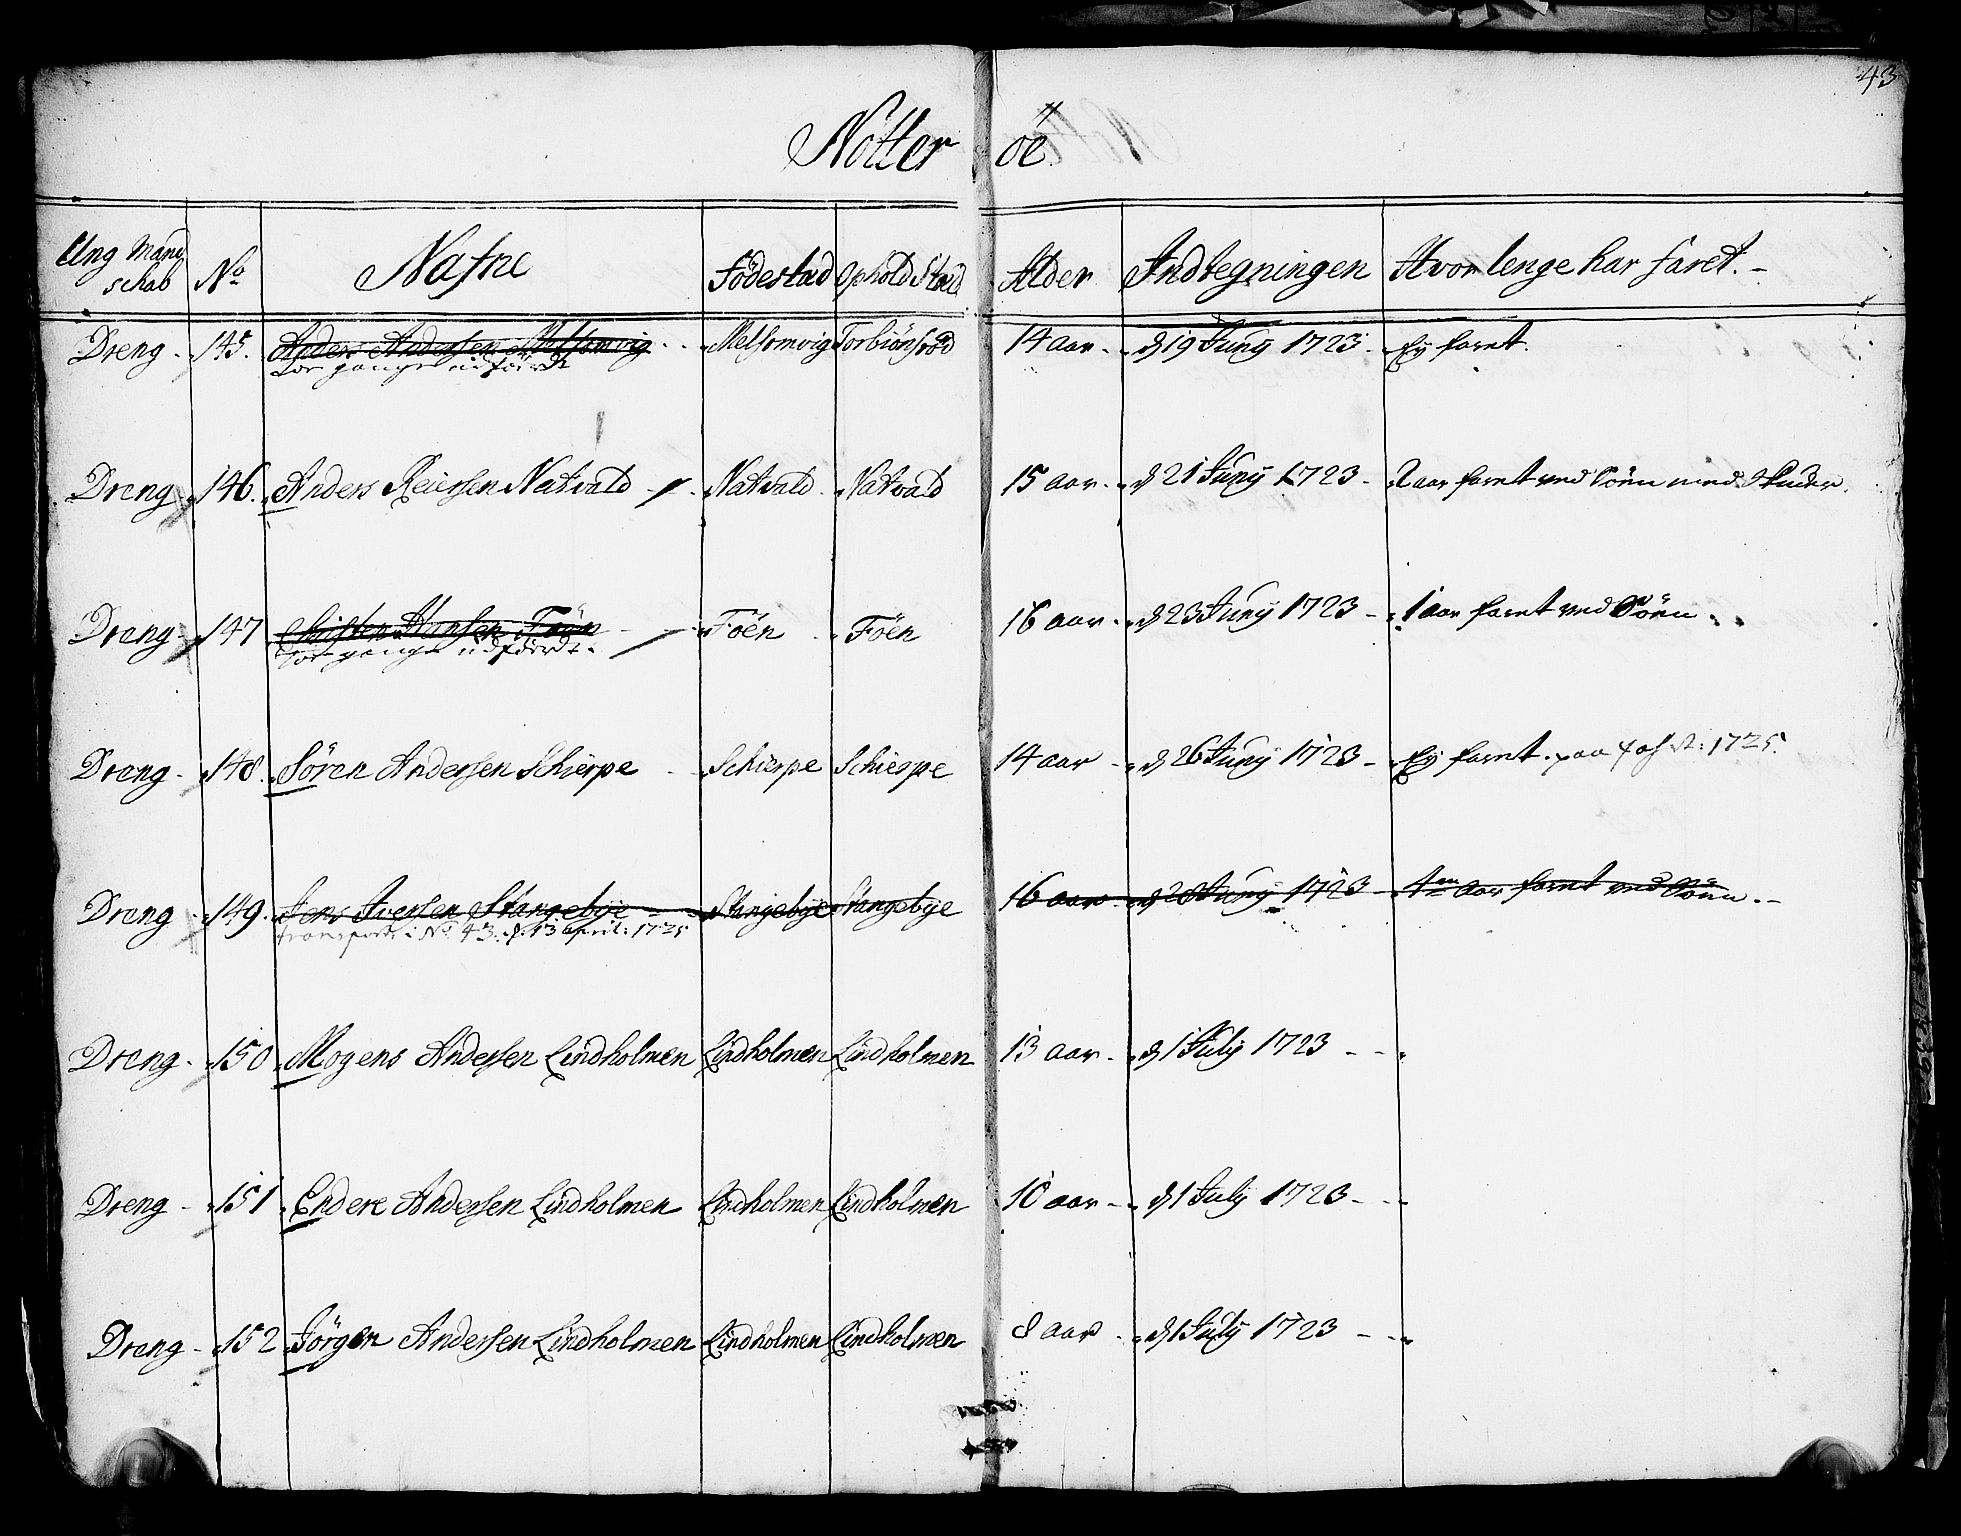 43
Nötter öe
Ung Mand schab No Nafne Födestad Ophold Stæd Alder Indtegningen Hvor lenge har faret. -
Dreng - 145. Anders Andersen Melsomvig - - Melsomvig Torbiönsröd 14 aar - d 19 Juny 1723 - Ey faret.
for gangen udfördt
Dreng 146. Anders Reiersen Natvald - Natvald - Natvald 15 aar - d 21 Juny 1723 - 2 aar faret ved Söen med Skuder.
Dreng - 147 Christen Hansen Föen - Föen - Föen 16 aar - d 23 Juny 1723 - 1 aar faret ved Söen.
udfördt.
Dreng - 148. Sören Andersen Schierpe - Schierpe Schierpe 14 aar - d 26 Juny 1723 - Ey faret. paa 1725.
Dreng - 149. Jens Iversen Stangebÿe - Stangebÿe Stangebÿe 16 aar - d 28 Juny 1723 - 1 aar faret ved Söen. -
transport: i No 43. d: 13 april: 1725
Dreng - 150 Mogens Andersen Lindholmen Lindholmen Lindholmen 13 aar - d 1 July 1723 - - -
Dreng - 151 Endere Andersen Lindholmen Lindholmen Lindholmen 10 aar - d 1 July 1723 - - -
Dreng - 152 Jörgen Andersen Lindholmen Lindholmen Lindholmen 8 aar - d 1 July 1723 - - -